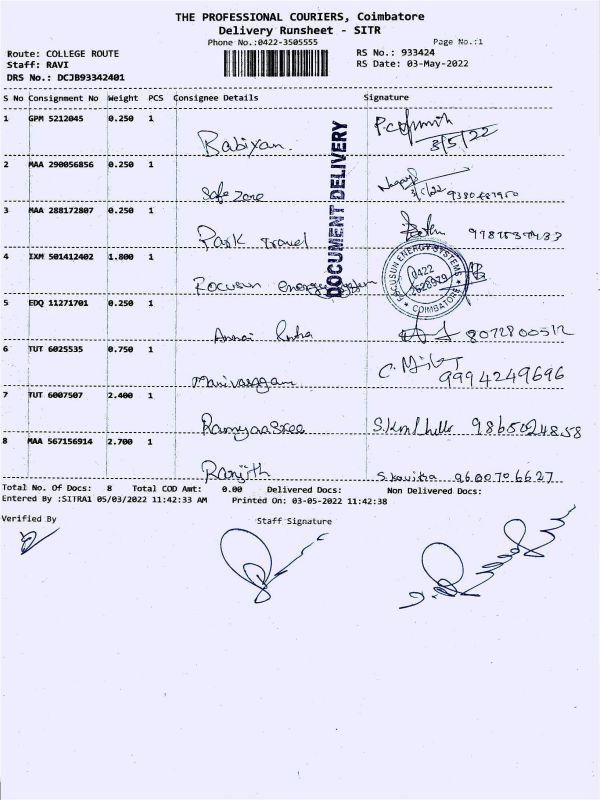 THE PROFESSIONAL COURIERS, Coimbatore
Delivery Runsheet - SITR
Phone No.:0422-3505555 Page No.:1
Route: COLLEGE ROUTE RS No.: 933424
Staff: RAVI RS Date: 03-May-2022
DRS No.: DCJB93342401
S No Consignment No Weight PCS Consignee Details Signature
1 GPM 5212045 0.250 1
Babiyan. 3/5/22
2 MAA 290056856 0.250 1
Safe zone
3 MAA 288172807 0.250 1
Park travel
4 IXM 501412402 1.800 1
Focusun energy system
DOCUMENT DELIVERY
FOCUSUN ENERGY SYSTEMS
0422
2628979
COIMBATORE
5 EDQ 11271701 0.250 1
8072800512
6 TUT 6025535 0.750 1
Manivasagam 9994249696
7 TUT 6007507 2.400 1
RamyaaSree 9865024858
8 MAA 567156914 2.700 1
Ranjith S.kavitha 9600706627
Total No. Of Docs: 8 Total COD Amt: 0.00 Delivered Docs: Non Delivered Docs:
Entered By :SITRA1 05/03/2022 11:42:33 AM Printed On: 03-05-2022 11:42:38
Verified By Staff Signature